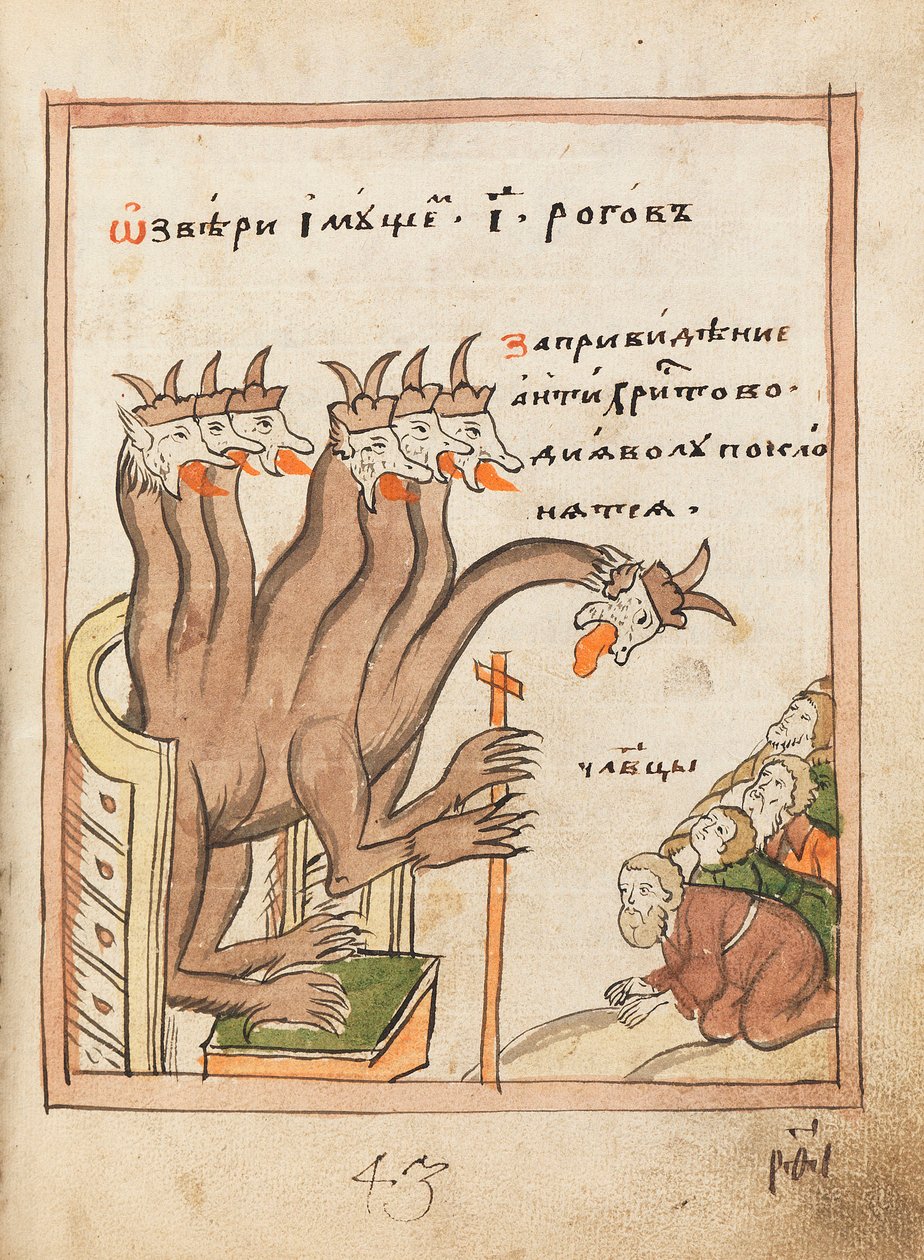 Ѡ звѣ́ри імꙋщеⷨ. і҃. рого́въ
Запривидѣние
анти́хриⷭтово.
диѧволꙋ покло́
нѧтсѧ.
чл҃вцы
43